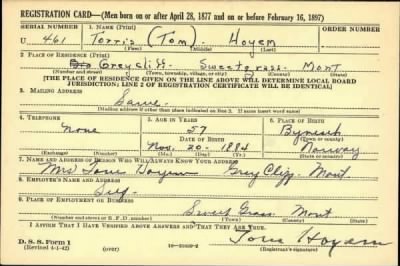 REGISTRATION CARD—(Men born on or after April 28, 1877 and on or before February 16, 1897)
SERIAL NUMBER 1. NAME (Print) ORDER NUMBER
U 461 Torris (Tom) Hoyem
(First) (Middle) (Last)
2. PLACE OF RESIDENCE (Print)
Greycliff Sweetgrass Mont
(Number and street) (Town, township, village, or city) (County) (State)
[THE PLACE OF RESIDENCE GIVEN ON THE LINE ABOVE WILL DETERMINE LOCAL BOARD
JURISDICTION; LINE 2 OF REGISTRATION CERTIFICATE WILL BE IDENTICAL]
3. MAILING ADDRESS
Same
[Mailing address if other than place indicated on line 2. If same insert word same]
4. TELEPHONE 5. AGE IN YEARS 6. PLACE OF BIRTH
None 57 Byneset
DATE OF BIRTH (Town or county)
Nov. 20 - 1884 Norway
(Exchange) (Number) (Mo.) (Day) (Yr.) (State or country)
7. NAME AND ADDRESS OF PERSON WHO WILL ALWAYS KNOW YOUR ADDRESS
Mrs Tom Hoyem Grey Cliff Mont
8. EMPLOYER'S NAME AND ADDRESS
Self
9. PLACE OF EMPLOYMENT OR BUSINESS
Sweet Grass Mont
(Number and street or R. F. D. number) (Town) (County) (State)
I AFFIRM THAT I HAVE VERIFIED ABOVE ANSWERS AND THAT THEY ARE TRUE.
D. S. S. Form 1
(Revised 4-1-42) (over) Tom Hoyem
(Registrant's signature)